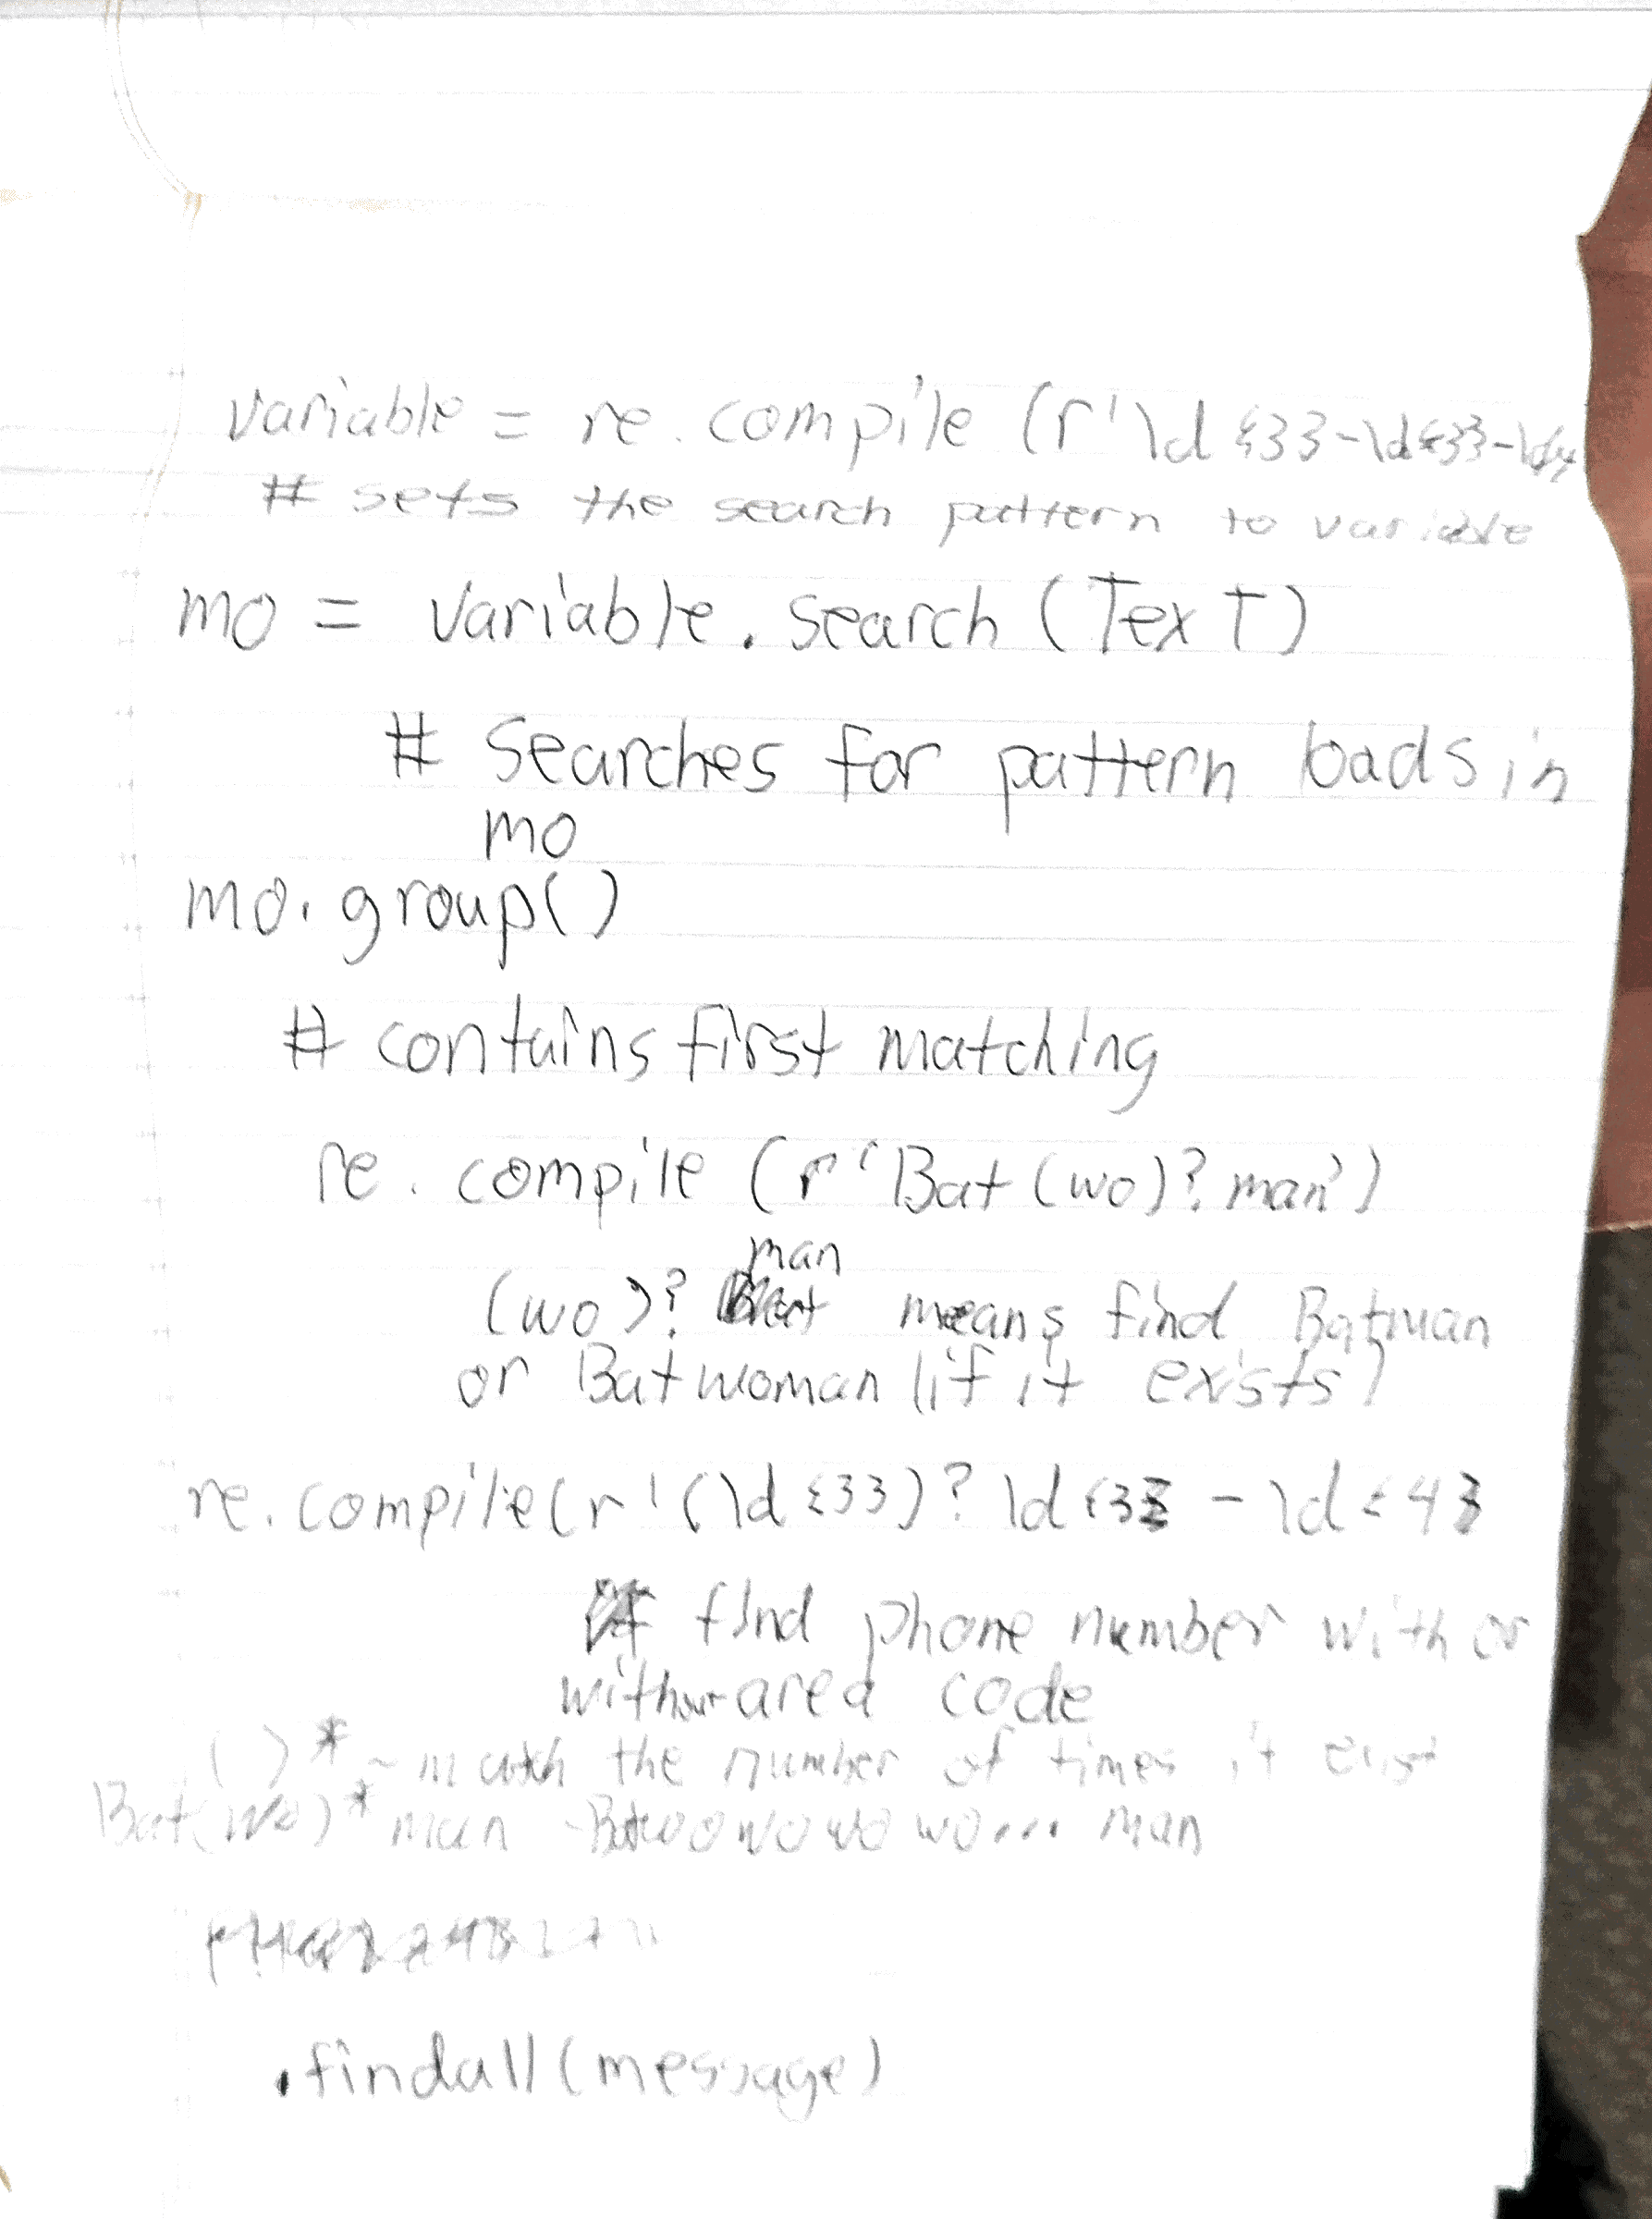 variable = re. compile (r'\d{3}-\d{3}-\d4
# sets the search pattern to variable
mo = variable. search (Text)
# Searches for pattern loads in
mo
mo. group()
# contains first matching
re. compile (r'Bat (wo)? man')
man
(wo)? means find Batman
or Batwoman (if it exists)
re. compile(r'(\d{3})? \d{3} - \d{4}
# find phone number with or
without area code
( )* ~ match the number of times it exist
Bat(wo)* man - Batwo wo wo wo... man
.findall(message)